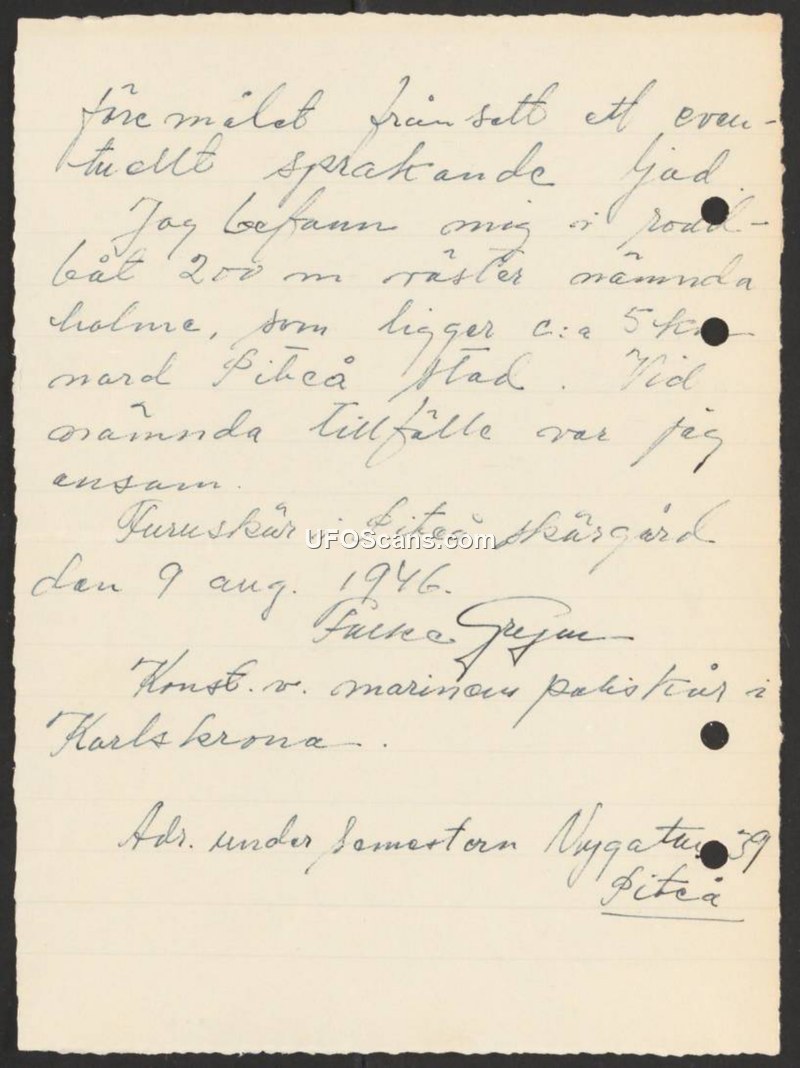 föremålet frånsett ett even-
tuellt sprakande ljud.
Jag befann mig i rodd-
båt 200 m väster nämnda
holme, som ligger c:a 5 km
nord Piteå stad. Vid
nämnda tillfälle var jag
ensam.
Furuskär i Piteå skärgård
den 9 aug. 1946.
Konst. v. marinens poliskår i
Karlskrona.
Adr. under semestern Nygatan 39
Piteå
UFOScans.com